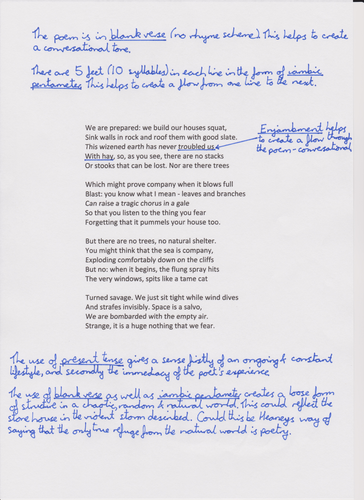 The poem is in blank verse (no rhyme scheme). This helps to create
a conversational tone.
There are 5 feet (10 syllables) in each line in the form of iambic
pentameter. This helps to create a flow from one line to the next.
We are prepared: we build our houses squat,
Sink walls in rock and roof them with good slate.
This wizened earth has never troubled us
With hay, so, as you see, there are no stacks
Or stooks that can be lost. Nor are there trees
Enjambment helps
to create a flow through
the poem - conversational
Which might prove company when it blows full
Blast: you know what I mean - leaves and branches
Can raise a tragic chorus in a gale
So that you listen to the thing you fear
Forgetting that it pummels your house too.
But there are no trees, no natural shelter.
You might think that the sea is company,
Exploding comfortably down on the cliffs
But no: when it begins, the flung spray hits
The very windows, spits like a tame cat
Turned savage. We just sit tight while wind dives
And strafes invisibly. Space is a salvo,
We are bombarded with the empty air.
Strange, it is a huge nothing that we fear.
The use of present tense gives a sense firstly of an ongoing & constant
lifestyle, and secondly the immediacy of the poet's experience
The use of blank verse as well as iambic pentameter creates a loose form
of structure in a chaotic, random & natural world. This could reflect the
store house in the violent storm described. Could this be Heaney's way of
saying that the only true refuge from the natural world is poetry.